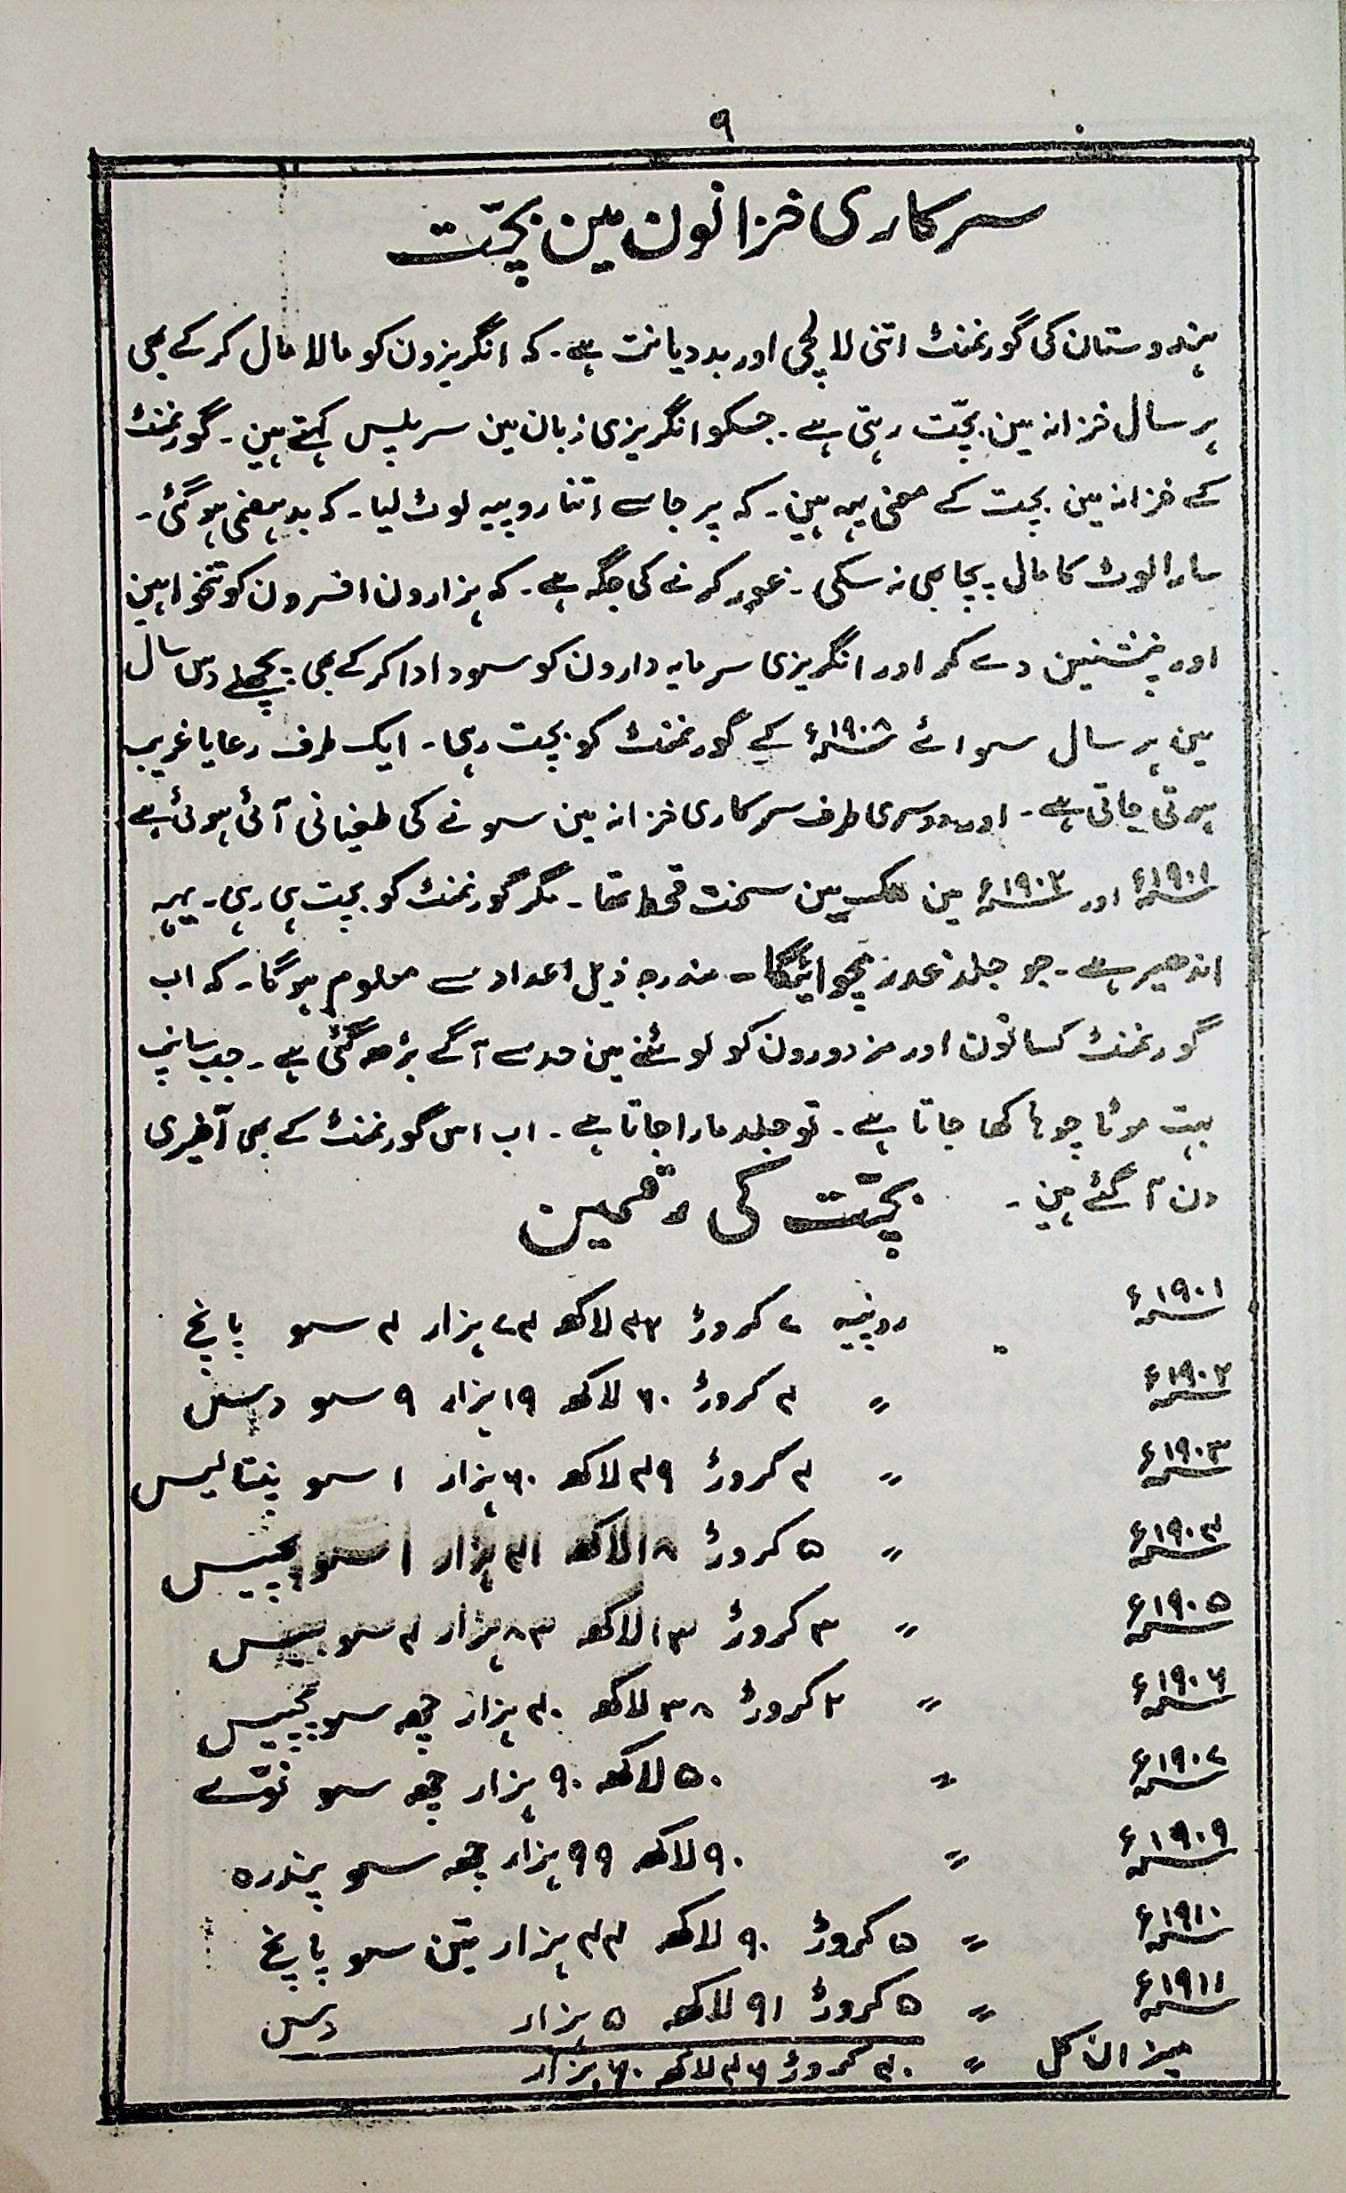 ۹
سرکاری خزانون مین بچّت
ہندوستان کی گورنمنٹ اتنی لالچی اور بددیانت ہے۔ کہ انگریزون کو مالا مال کرکے بھی
ہر سال خزانہ مین بچّت رہتی ہے۔ جسکو انگریزی زبان مین سرپلس کہتے ہین۔ گورنمنٹ
کے خزانہ مین بچت کے معنی یہہ ہین۔ کہ پرجا سے اتنا روپیہ لوٹ لیا۔ کہ بدہضمی ہوگئی۔
سارا لوٹ کا مال پچا بھی نہ سکی۔ غور کرنے کی جگہ ہے۔ کہ ہزارون افسرون کو تنخواہین
اور پنشنین دے کر اور انگریزی سرمایہ دارون کو سود ادا کرکے بھی پچھلے دس سال
مین ہر سال سوائے ۱۹۰۸ء کے گورنمنٹ کو بچت رہی۔ ایک طرف رعایا غریب
ہوتی جاتی ہے۔ اور دوسری طرف سرکاری خزانہ مین سونے کی طغیانی آئی ہوئی ہے
۱۹۰۱ء اور ۱۹۰۲ء مین ملک مین سخت قحط تھا۔ مگر گورنمنٹ کو بچت ہی رہی۔ یہہ
اندھیر ہے۔ جو جلد غدر مچوائیگا۔ مندرجہ ذیل اعداد سے معلوم ہوگا۔ کہ اب
گورنمنٹ کسانون اور مزدورون کو لوٹنے مین حد سے آگے بڑھ گئی ہے۔ جب سانپ
بہت موٹا چوہا کھا جاتا ہے۔ تو جلد مارا جاتا ہے۔ اب اس گورنمنٹ کے بھی آخیری
دن آگئے ہین۔
بچّت کی رقمین
۱۹۰۱ء روپیہ ۷ کروڑ ۴۷ لاکھ ۷۴ ہزار ۴ سو پانچ
۱۹۰۲ء 〃 ۴ کروڑ ۶۰ لاکھ ۱۹ ہزار ۹ سو دس
۱۹۰۳ء 〃 ۴ کروڑ ۴۹ لاکھ ۶۰ ہزار ۱ سو پنتالیس
۱۹۰۴ء 〃 ۵ کروڑ ۱۸ لاکھ ۴۱ ہزار ۱ سو پچیس
۱۹۰۵ء 〃 ۳ کروڑ ۱۳ لاکھ ۸۳ ہزار ۴ سو بیس
۱۹۰۶ء 〃 ۲ کروڑ ۳۸ لاکھ ۴۰ ہزار چھہ سو پچیس
۱۹۰۷ء 〃 ۵۰ لاکھ ۹۰ ہزار چھہ سو نوّے
۱۹۰۹ء 〃 ۹۰ لاکھ ۹۹ ہزار چھہ سو پندرہ
۱۹۱۰ء 〃 ۵ کروڑ ۹۰ لاکھ ۴۴ ہزار تین سو پانچ
۱۹۱۱ء 〃 ۵ کروڑ ۹۱ لاکھ ۵ ہزار دس
میزان کل 〃 ۴۰ کروڑ ۴۶ لاکھ ۶۰ ہزار